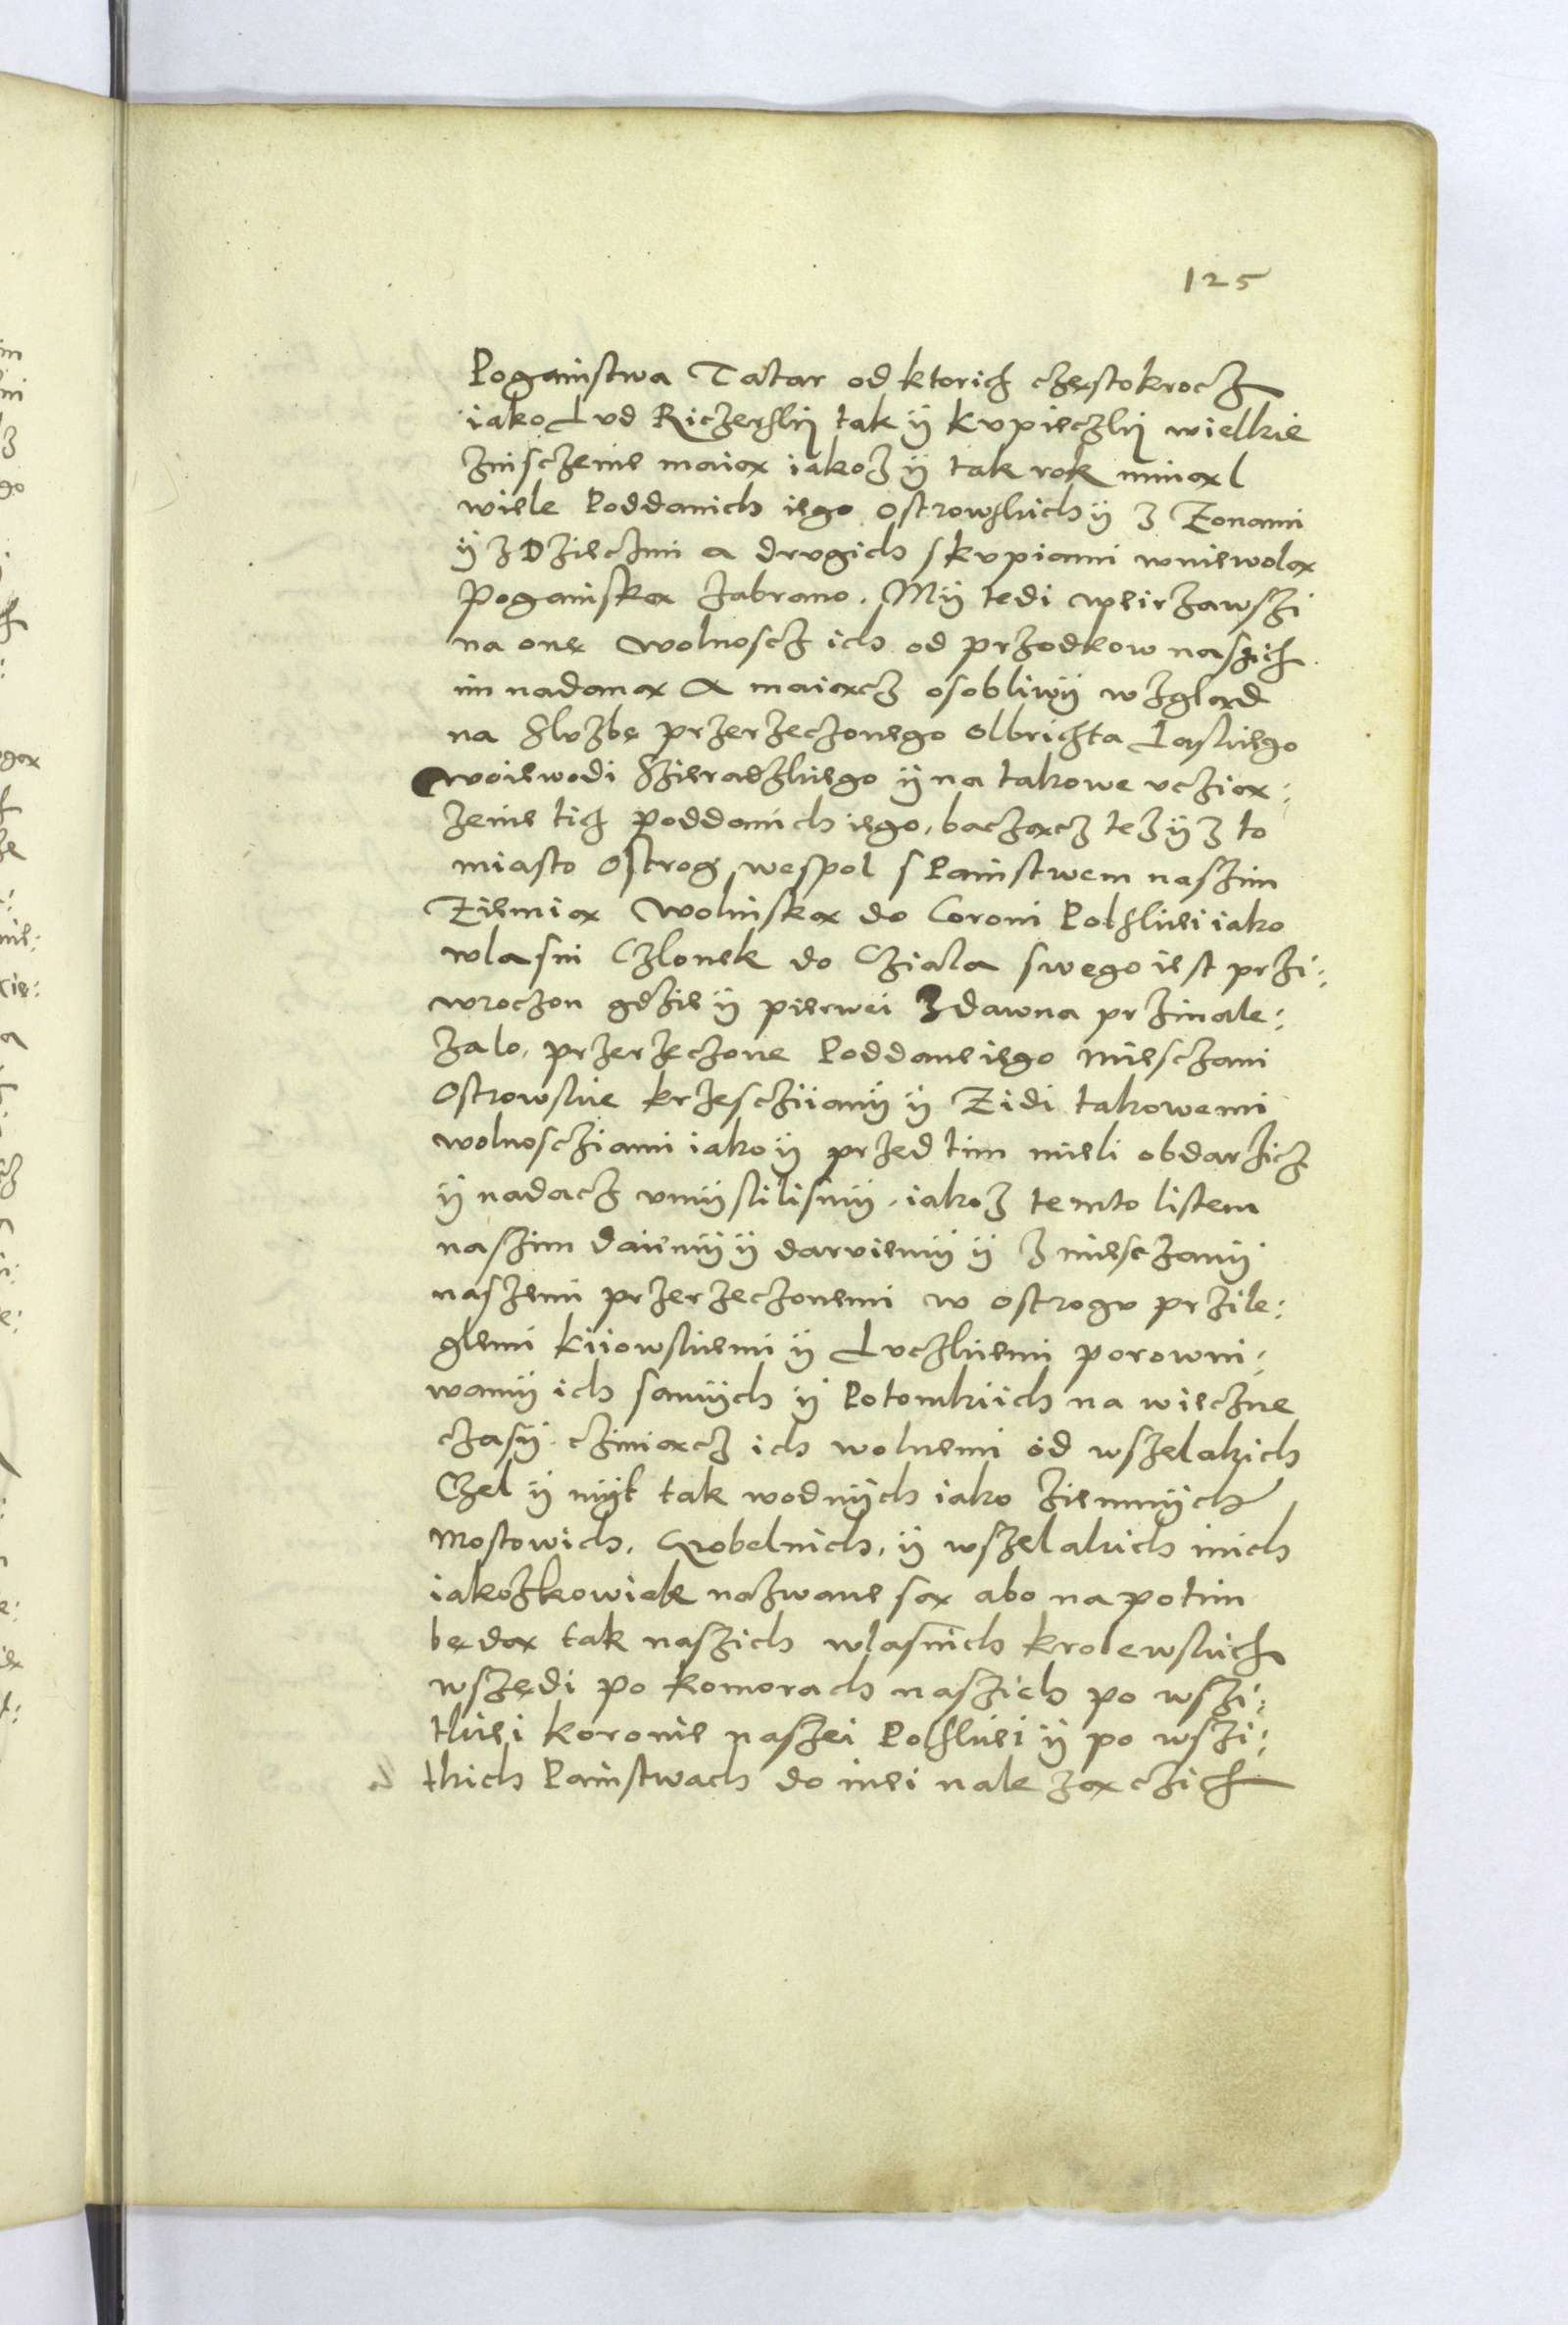 125
Pogainstwa Tatar od ktorich częstokrocz
iako Lud Riczerski tak ÿ kupieczki wielkie
zniszczenie maiax iakoz ÿ tak rok minaxl
wiele Poddanich iego ostrowskich ÿ z Zonami
ÿ z Dzieczmi a drugich skupiami wniewolax
Poganiskax zabrano. Mÿ tedi weirzawszi
na onę wolnoscz ich od przodkow naszich
im nadanax A maiaxcz osobliwÿ wzglaxd
na służbę przerzeczonego olbrichta Laskiego
woiewodi Szieradzkiego ÿ na takowe vcziax:
zenie tich poddanich iego, baczaxcz tez ÿ z to
miasto Ostrog wespol s Painstwem naszim
Ziemiax Wolinskax do Coroni Polskiei iako
wlasni Czlonek do Cziala swego iest przi:
wroczon gdzie ÿ pierwei zdawna przinale:
zalo, przerzeczone Poddane iego miesczani
Ostrowskie krzesczianÿ ÿ Zidi takowemi
wolnosciami iako ÿ przed tim mieli obdarzicz
ÿ nadacz vmÿslilismÿ. iakoz temto listem
naszim daiemÿ ÿ daruiemÿ ÿ z miesczanÿ
naszemi przerzeczonemi w ostrogu przile:
glemi kiiowskiemi ÿ Luczkiemi porowni:
wamÿ ich samÿch ÿ Potomkiich na wieczne
czasÿ. cziniaxcz ich wolnemi od wszelakich
Czel ÿ mÿt tak wodnÿch iako ziemnÿch
Mostowich, Grobelnich, ÿ wszelakich inich
iakozkowiek nazwane sax abo na potim
będax tak naszich wlasnich krolewskich
wszędi po komorach naszich po wszi:
tkiei koronie naszei Polskiei ÿ po wszi:
tkich Painstwach do niei nalezaxczich